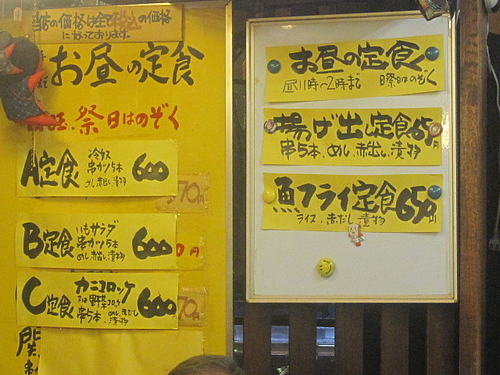 当店の価格は全て税込の価格
になっております。
お昼の定食
祭日はのぞく
A定食
冷奴
串かつ5本
めし、赤出し、漬物
600
70円
B定食
いもサラダ
串かつ5本
めし、赤出し、漬物
600
0円
C定食
カニコロッケ
串5本
漬物
600
70円
お昼の定食
昼11時〜2時まで
日祭日はのぞく
揚げ出し定食 65 円
串5本、めし、赤出し、漬物
魚フライ定食 650円
ライス、赤だし、漬物